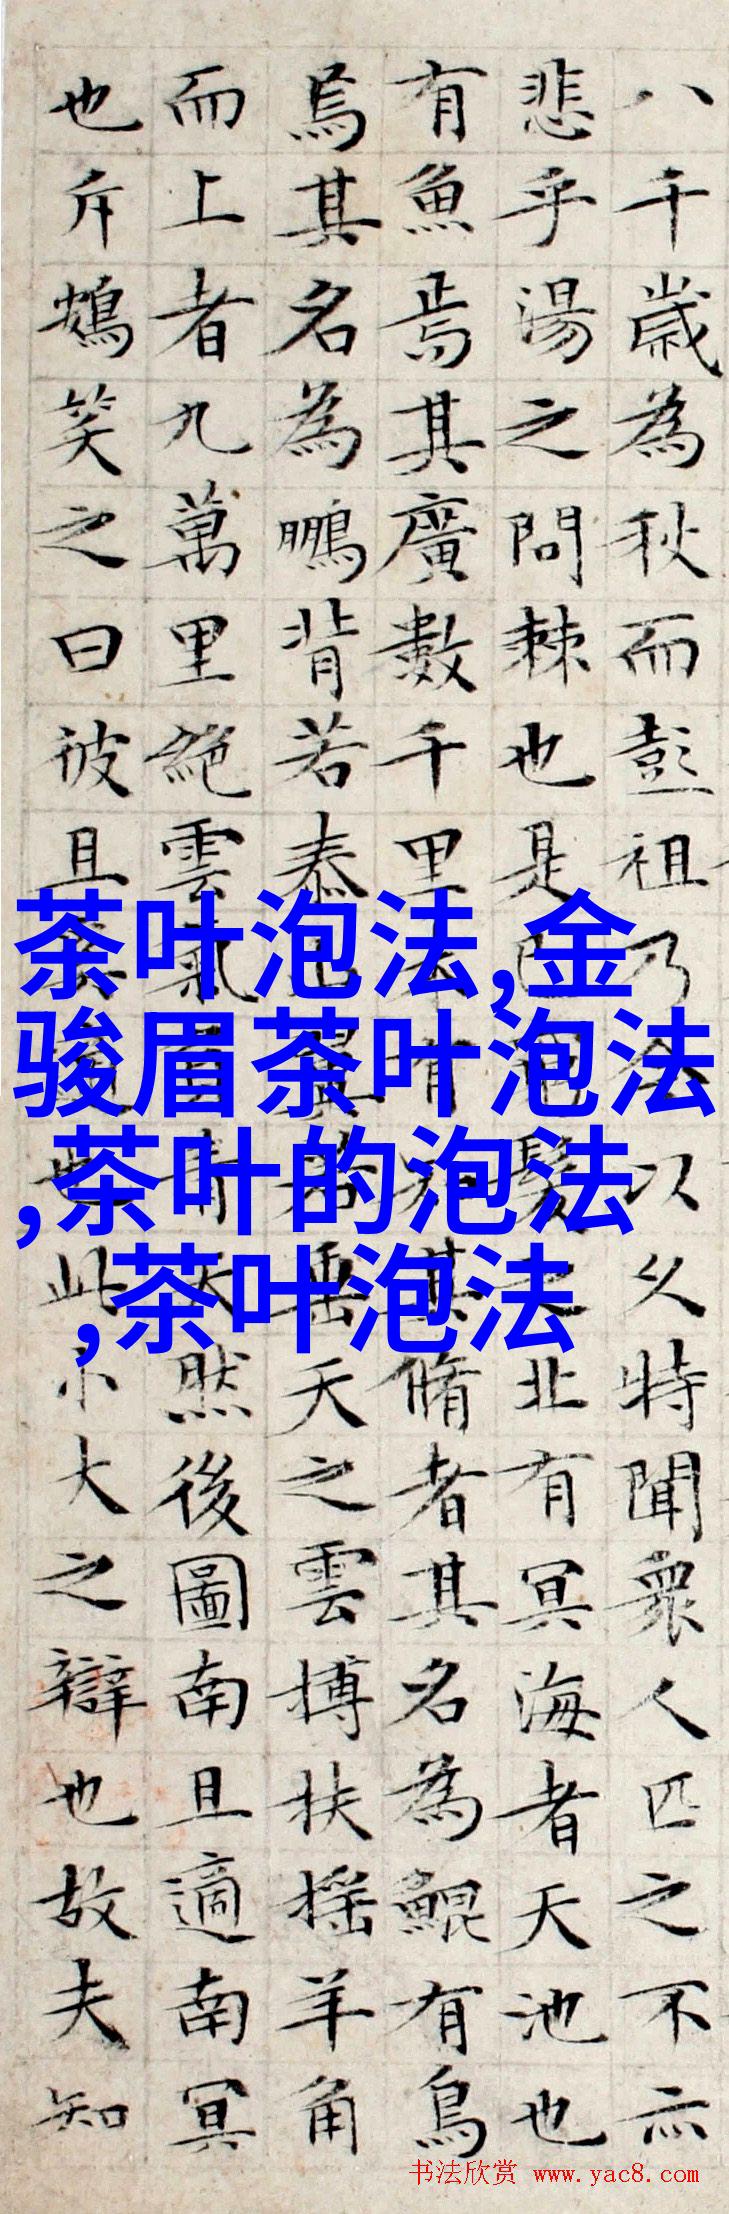 八千歲為秋而彭祖乃今以久特聞衆人匹之不亦
悲乎湯之問棘也是已窮髮之北有冥海者天池也
有魚焉其廣數千里未有知其脩者其名為鯤有鳥
焉其名為鵬背若泰山翼若垂天之雲搏扶摇羊角
而上者九萬里絕雲氣負青天然後圖南且適南冥
也斥鴳笑之曰彼且奚適也此小大之辯也故夫知
茶叶泡法,金
骏眉茶叶泡法
,茶叶的泡法
,茶叶泡法
书法欣赏 www.yac8.com